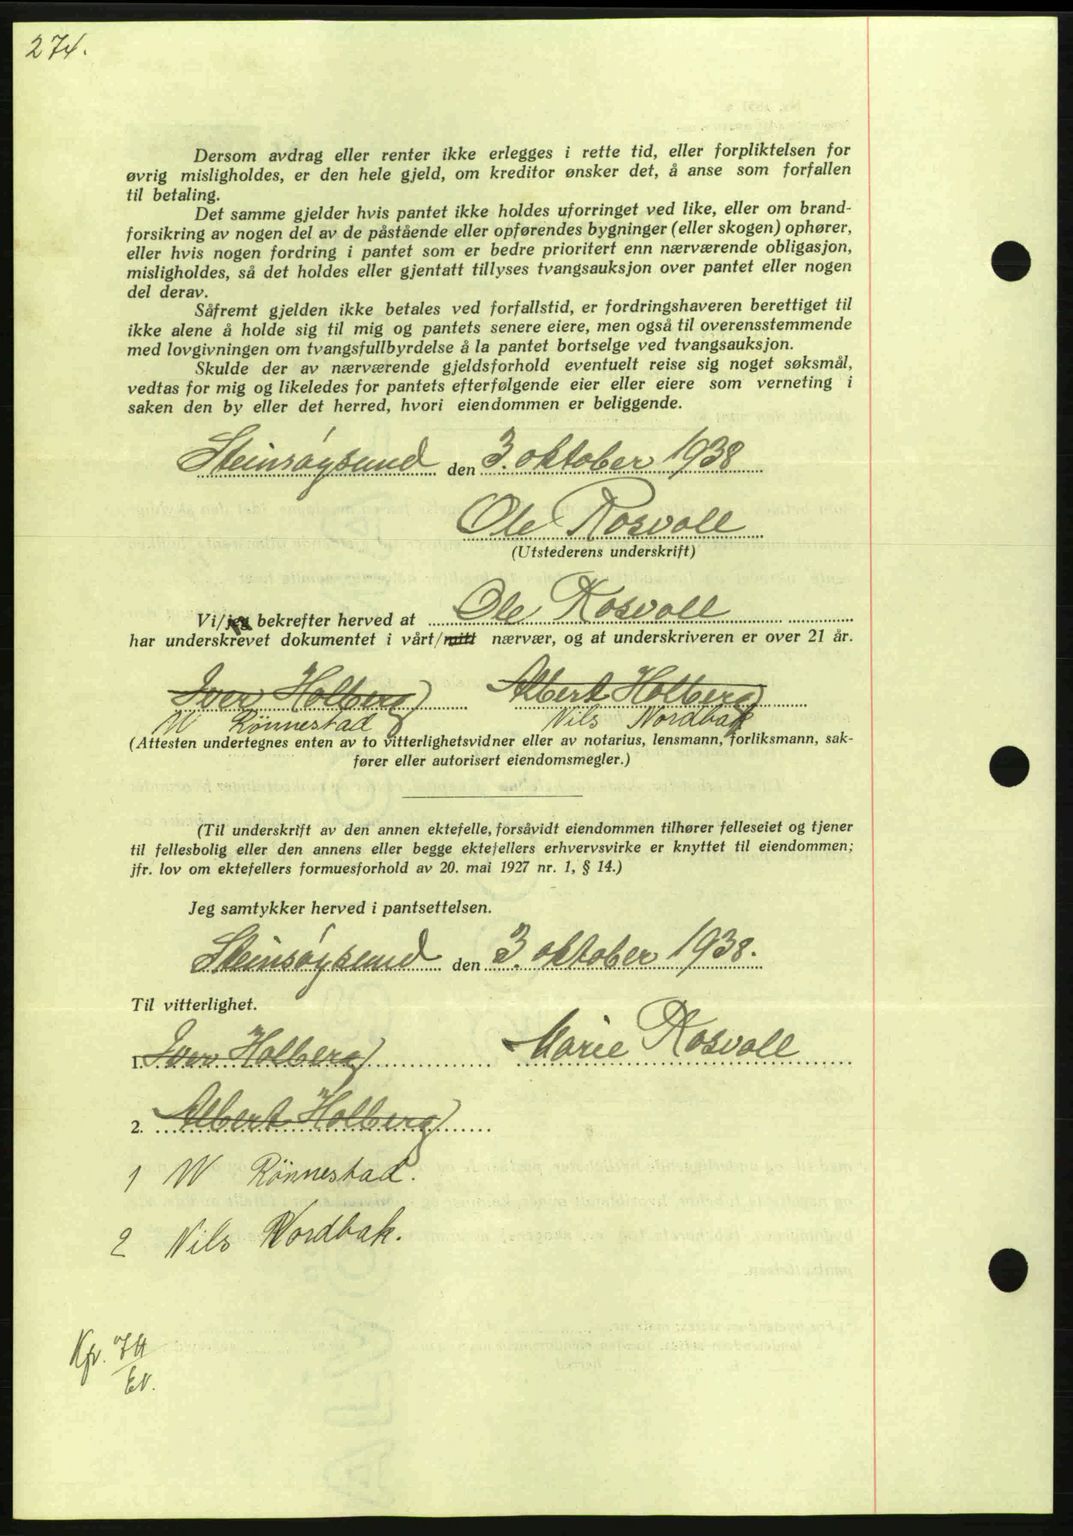 274.
Dersom avdrag eller renter ikke erlegges i rette tid, eller forpliktelsen for
øvrig misligholdes, er den hele gjeld, om kreditor ønsker det, å anse som forfallen
til betaling.
Det samme gjelder hvis pantet ikke holdes uforringet ved like, eller om brand-
forsikring av nogen del av de påstående eller opførendes bygninger (eller skogen) ophører,
eller hvis nogen fordring i pantet som er bedre prioritert enn nærværende obligasjon,
misligholdes, så det holdes eller gjentatt tillyses tvangsauksjon over pantet eller nogen
del derav.
Såfremt gjelden ikke betales ved forfallstid, er fordringshaveren berettiget til
ikke alene å holde sig til mig og pantets senere eiere, men også til overensstemmende
med lovgivningen om tvangsfullbyrdelse å la pantet bortselge ved tvangsauksjon.
Skulde der av nærværende gjeldsforhold eventuelt reise sig noget søksmål,
vedtas for mig og likeledes for pantets efterfølgende eier eller eiere som verneting i
saken den by eller det herred, hvori eiendommen er beliggende.
Steinsøysund den 3. oktober 1938
Ole Rosvoll
(Utstederens underskrift)
Vi/jeg bekrefter herved at Ole Rosvoll
har underskrevet dokumentet i vårt/mitt nærvær, og at underskriveren er over 21 år.
Iver Holberg Albert Holberg
W Rönnestad Nils Nordbak
(Attesten undertegnes enten av to vitterlighetsvidner eller av notarius, lensmann, forliksmann, sak-
fører eller autorisert eiendomsmegler.)
(Til underskrift av den annen ektefelle, forsåvidt eiendommen tilhører felleseiet og tjener
til fellesbolig eller den annens eller begge ektefellers erhvervsvirke er knyttet til eiendommen;
jfr. lov om ektefellers formuesforhold av 20. mai 1927 nr. 1, § 14.)
Jeg samtykker herved i pantsettelsen.
Steinsøysund den 3. oktober 1938.
Til vitterlighet.
1. Iver Holberg Marie Rosvoll
2. Albert Holberg
1 W Rönnestad.
2 Nils Nordbak.